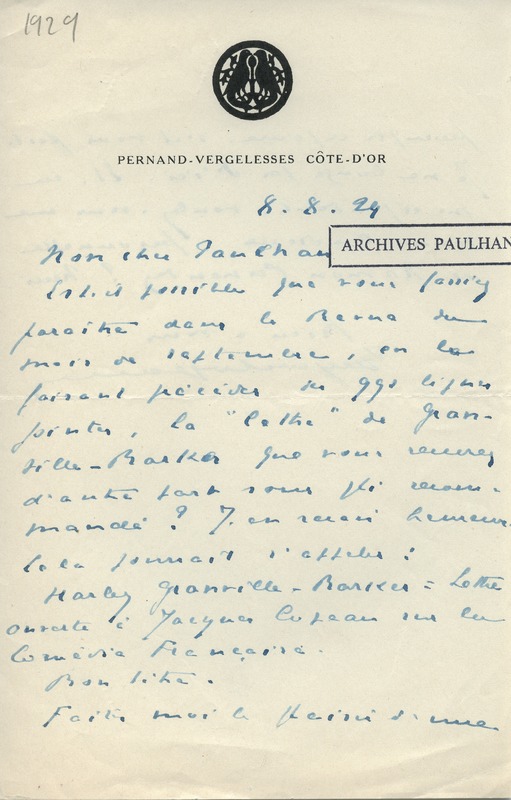 1929
PERNAND-VERGELESSES CÔTE-D'OR
8.8.29
ARCHIVES PAULHAN
Mon cher Paulhan
Est-il possible que vous fassiez
paraître dans la Revue du
mois de septembre, en la
faisant précéder des qqs lignes
jointes, la "lettre" de Gran-
ville-Barker que vous recevrez
d'autre part sous pli recom-
mandé ? J'en serais heureux.
Cela pourrait s'appeler :
Harley Granville-Barker = Lettre
ouverte à Jacques Copeau sur la
Comédie Française.
Bon titre.
Faites moi le plaisir d'une